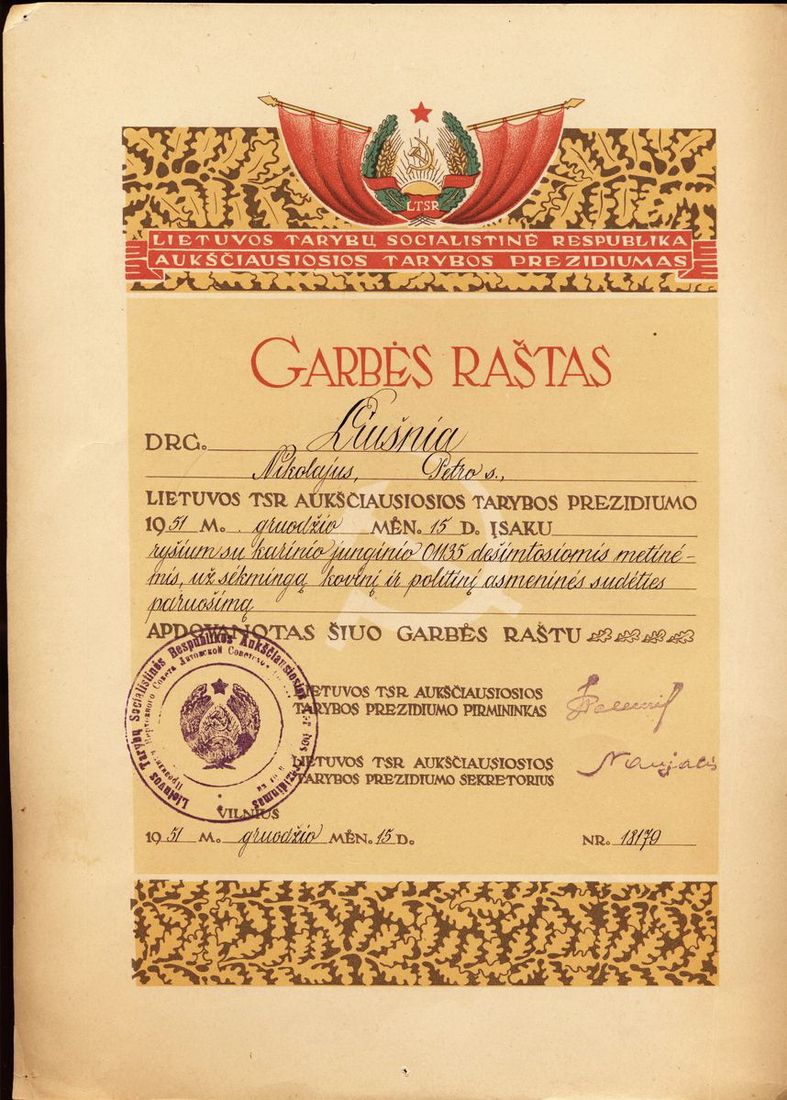 LTSR
LIETUVOS TARYBŲ SOCIALISTINĖ RESPUBLIKA
AUKŠČIAUSIOSIOS TARYBOS PREZIDIUMAS
GARBĖS RAŠTAS
DRG. Liušnia
Nikolajus, Petro s.,
LIETUVOS TSR AUKŠČIAUSIOSIOS TARYBOS PREZIDIUMO
1951 M. gruodžio MĖN. 15 D. ĮSAKU
ryšium su karinio junginio 01135 dešimtosiomis metinė-
mis, už sėkmingą kovinį ir politinį asmeninės sudėties
paruošimą
APDOVANOTAS ŠIUO GARBĖS RAŠTU
Lietuvos Tarybų Socialistinės Respublikos Aukščiausiosios Tarybos Prezidiumas
LIETUVOS TSR AUKŠČIAUSIOSIOS
TARYBOS PREZIDIUMO PIRMININKAS
LIETUVOS TSR AUKŠČIAUSIOSIOS
TARYBOS PREZIDIUMO SEKRETORIUS
VILNIUS
1951 M. gruodžio MĖN. 15 D. NR. 18179